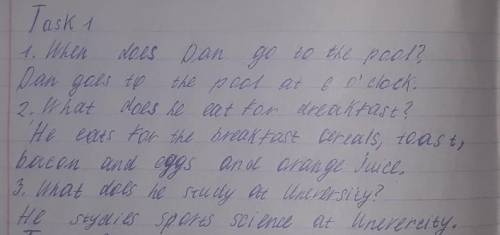 Task 1
1. When does Dan go to the pool?
Dan goes to the pool at 6 o'clock.
2. What does he eat for dreakfast?
He eats for the breakfast cereals, toast,
bacon and eggs and orange juice.
3. What does he study at Unersity?
He studies sports science at Unevercity.